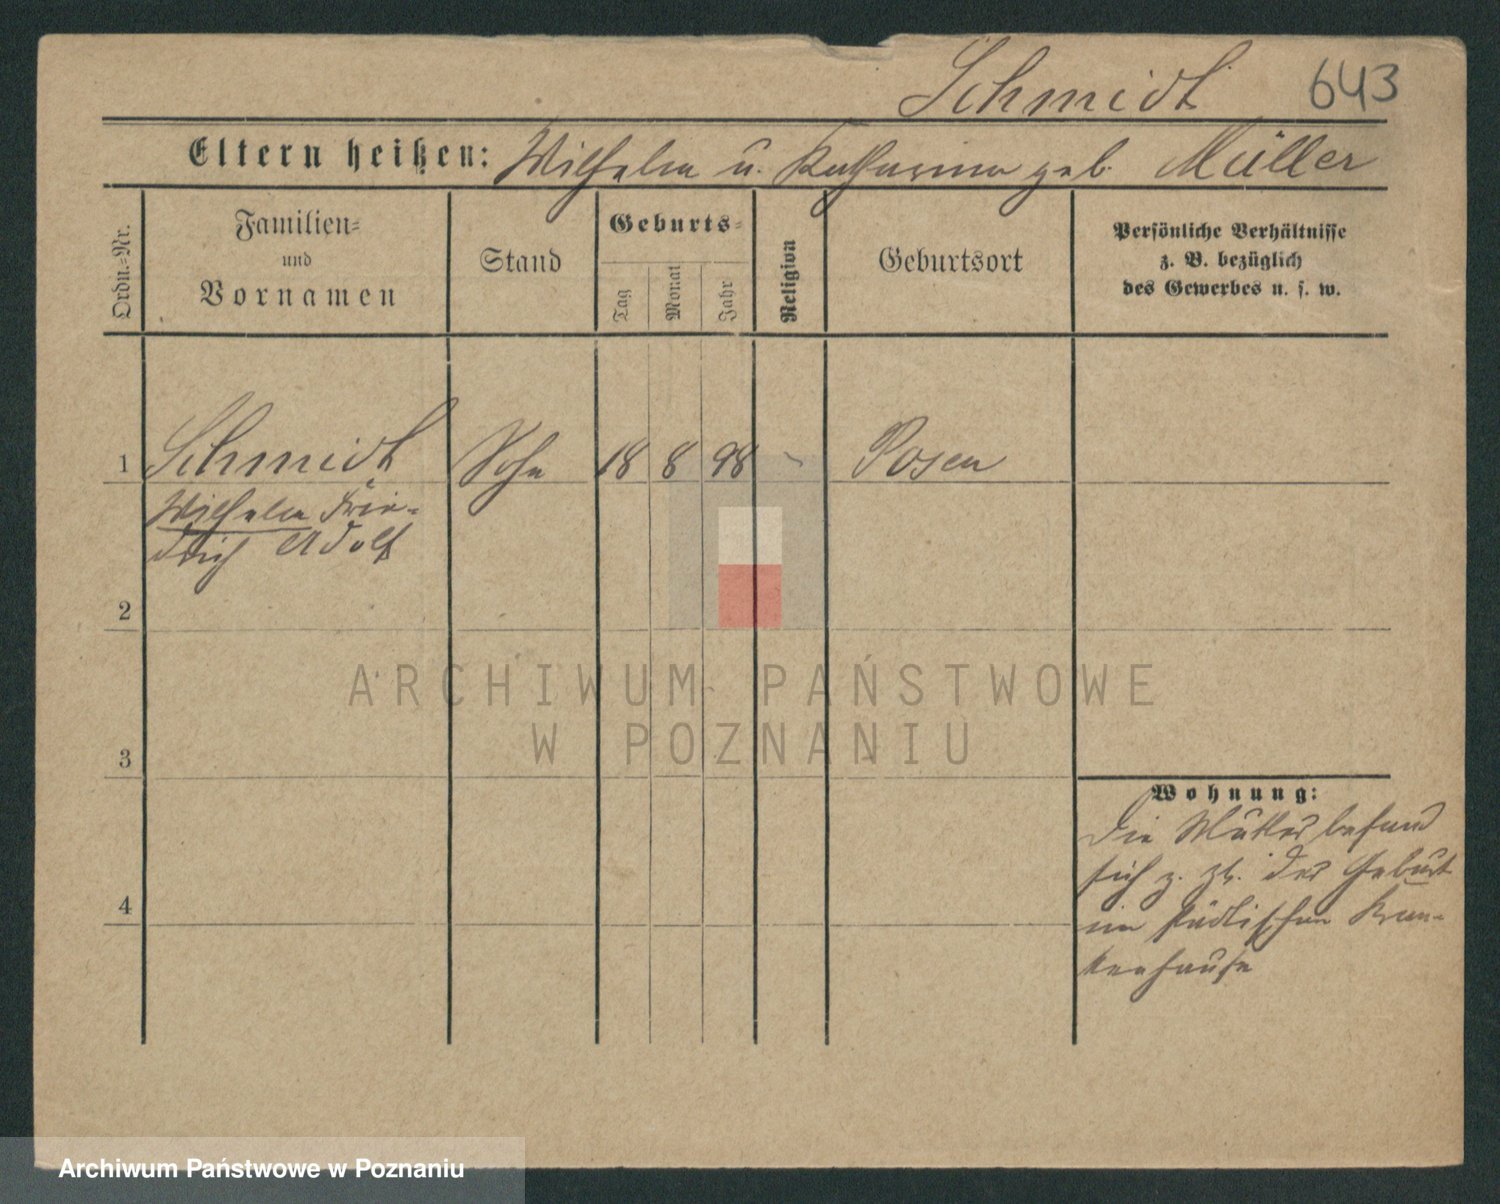 Schmidt 643
Eltern heißen: Wilhelm u. Katharina geb. Müller
Ordn.=Nr.
Familien=
und
Vornamen
Stand
Geburts=
Tag
Monat
Jahr
Religion
Geburtsort
Persönliche Verhältnisse
z. B. bezüglich
des Gewerbes u. s. w.
1 Schmidt Sohn 18 8 98 - Posen
Wilhelm Frie=
drich Adolf
2
ARCHIWUM PAŃSTWOWE
W POZNANIU
3
Wohnung:
Die Mutter befand
sich z. Zt. der Geburt
im städtischen Kran=
kenhause
4
Archiwum Państwowe w Poznaniu